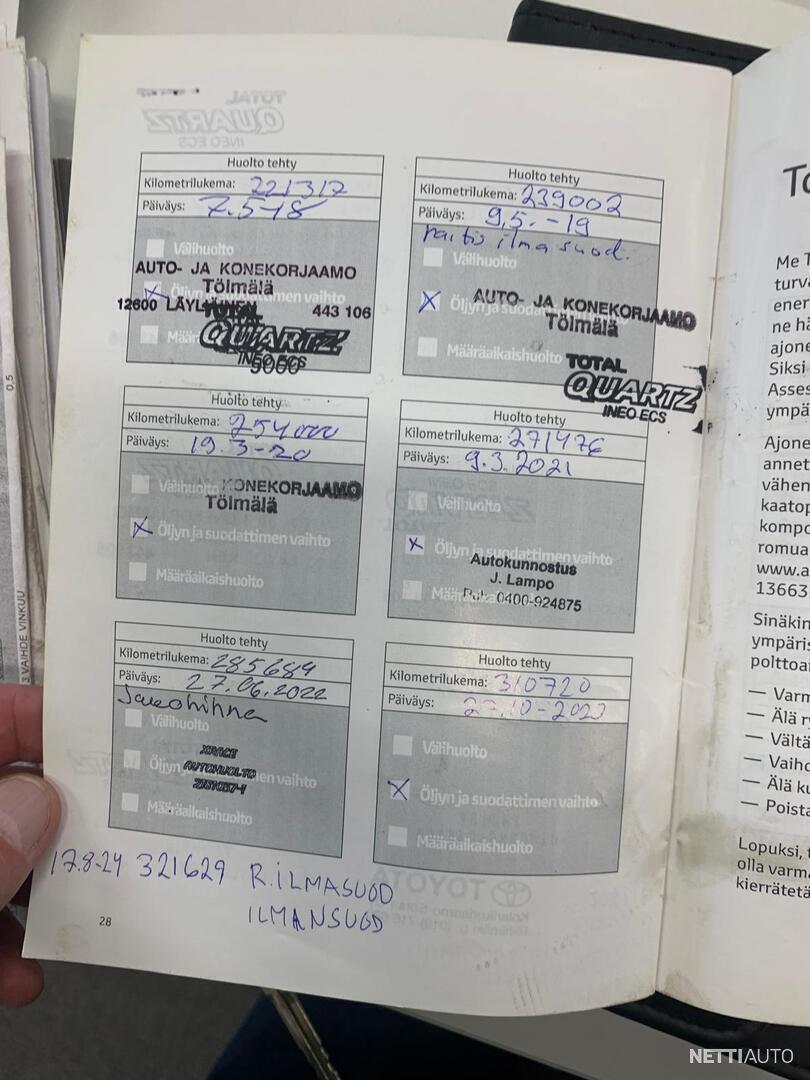 TOTAL
QUARTZ
INEO ECS
Huolto tehty
Kilometrilukema: 221317
Päiväys: 7.5-18
Välihuolto
AUTO- JA KONEKORJAAMO
Tölmälä
Öljyn ja suodattimen vaihto
12600 443 106
TOTAL
QUARTZ
INEO ECS
9000
Huolto tehty
Kilometrilukema: 239002
Päiväys: 9,5.-19
raitis ilma suod.
Välihuolto
AUTO- JA KONEKORJAAMO
Öljyn ja suodattimen
Tölmälä
Määräaikaishuolto
TOTAL
QUARTZ
INEO ECS
Huolto tehty
Kilometrilukema: 254000
Päiväys: 19.3-20
Välihuolto
KONEKORJAAMO
Tölmälä
Öljyn ja suodattimen vaihto
Määräaikaishuolto
Huolto tehty
Kilometrilukema: 271476
Päiväys: 9.3.2021
Välihuolto
Öljyn ja suodattimen vaihto
Autokunnostus
J. Lampo
Puh. 0400-924875
Huolto tehty
Kilometrilukema: 285689
Päiväys: 27.06.2022
Jakohihna
Välihuolto
XRACE
AUTOHUOLTO
Öljyn ja suodattimen vaihto
Määräaikaishuolto
Huolto tehty
Kilometrilukema: 310720
Päiväys:
Välihuolto
Öljyn ja suodattimen vaihto
Määräaikaishuolto
17.8-24 321629 R.ILMASUOD
ILMANSUOD
28
TOYOTA
0,5
3 VAIHDE VINKUU
To
Me T
turva
ener
ne hä
ajone
Siksi
Asses
ympä
Ajone
annet
vähen
kaatop
kompo
romua
www.a
13663
Sinäkin
ympäris
polttoai
— Varm
— Älä r
— Vältä
— Vaiho
— Älä ku
— Poista
Lopuksi, t
olla varma
kierrätetä
NETTIAUTO